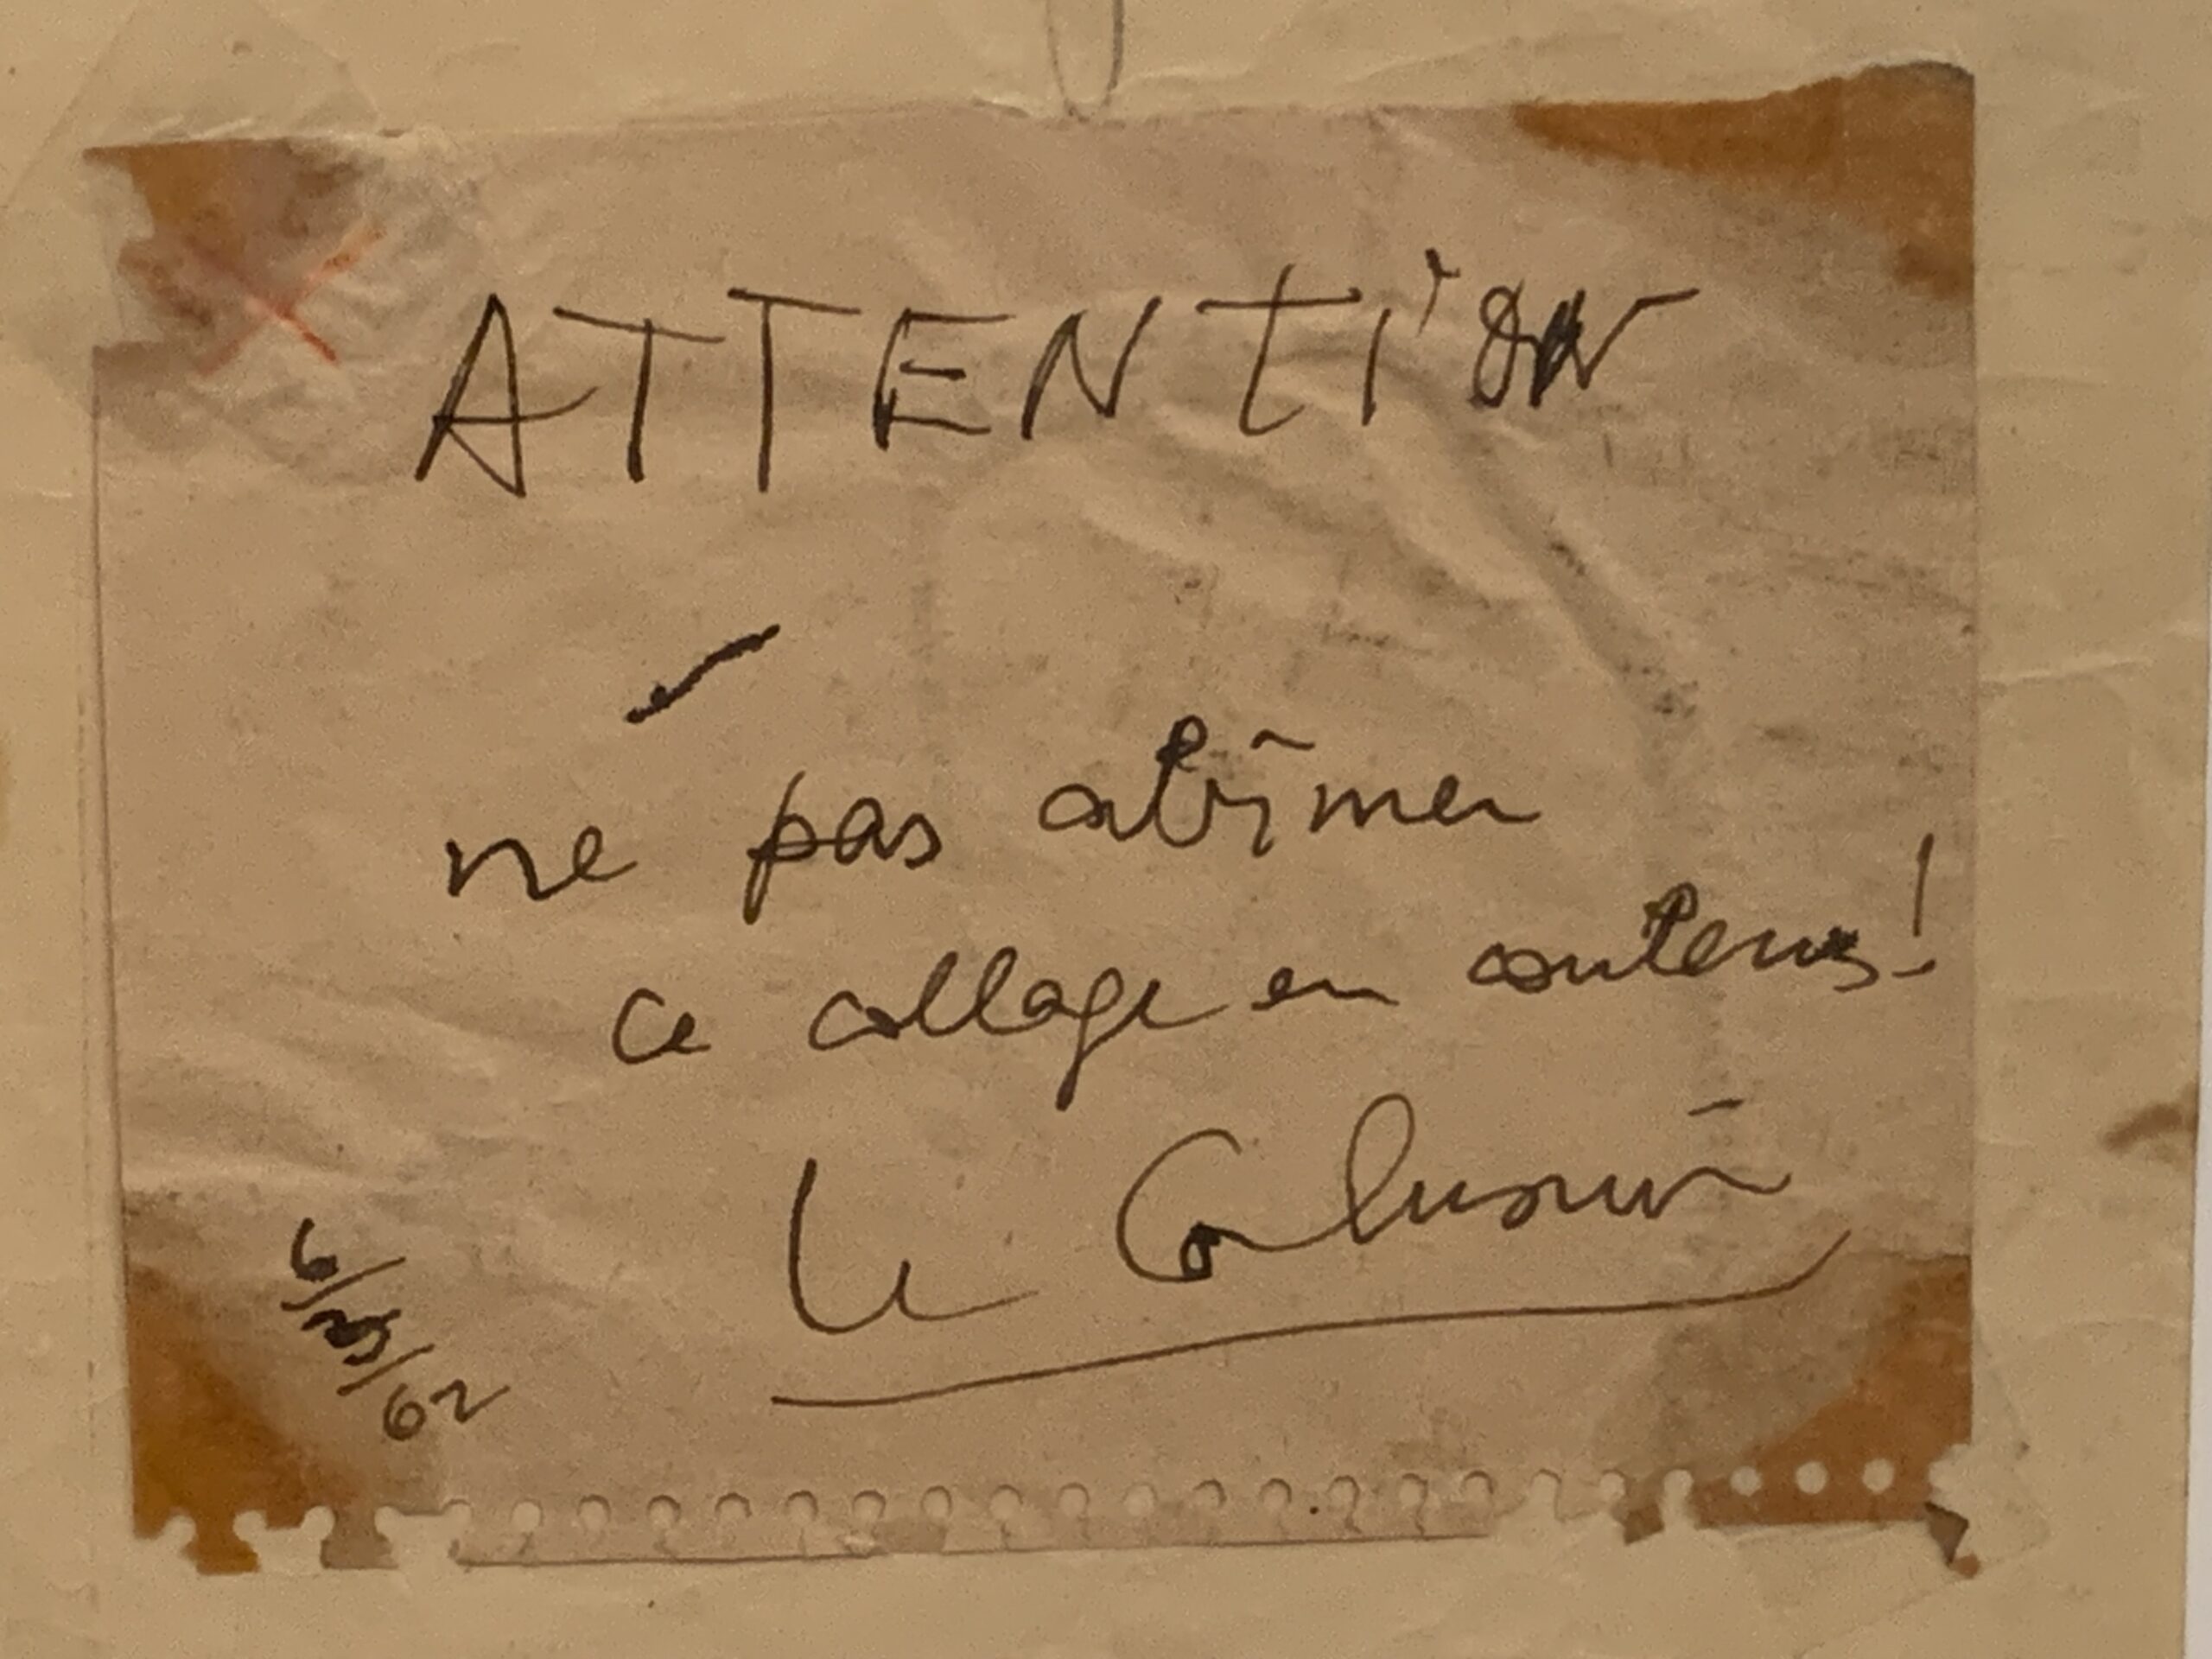 ATTENtiON
ne pas abîmer
ce collage en couleurs!
Le Corbusier
6/ /62